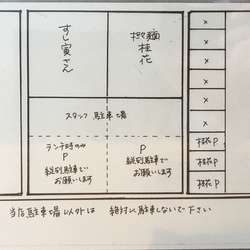 すし寅さん
桂花
スタッフ 駐車場
ランチ時のみ
P
縦列駐車で
お願いします
P
縦列駐車で
お願いします
×
×
×
×
×
桂花 P
桂花 P
桂花 P
当店駐車場以外は 絶対に駐車しないで下さい